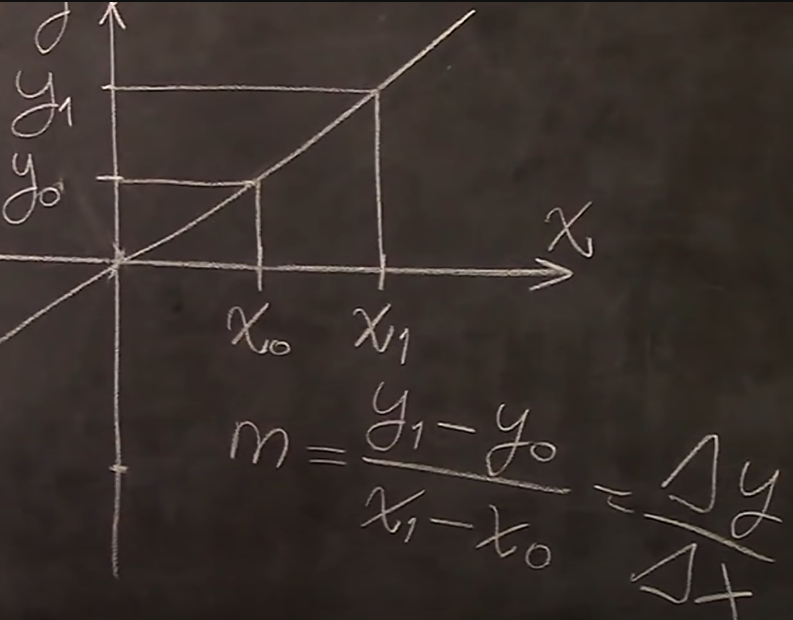 y
y₁
y₀
x
x₀ x₁
m = (y₁ - y₀) / (x₁ - x₀) = Δy / Δx